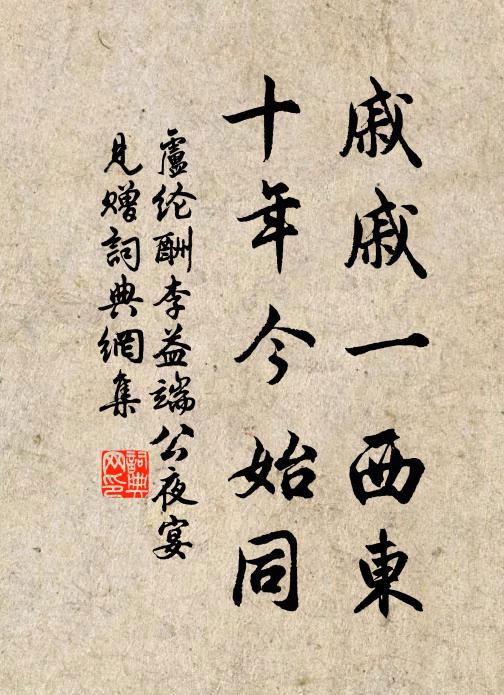 戚戚一西東
十年今始同
盧纶酬李益端公夜宴
見贈詞典網集
詞典
网印